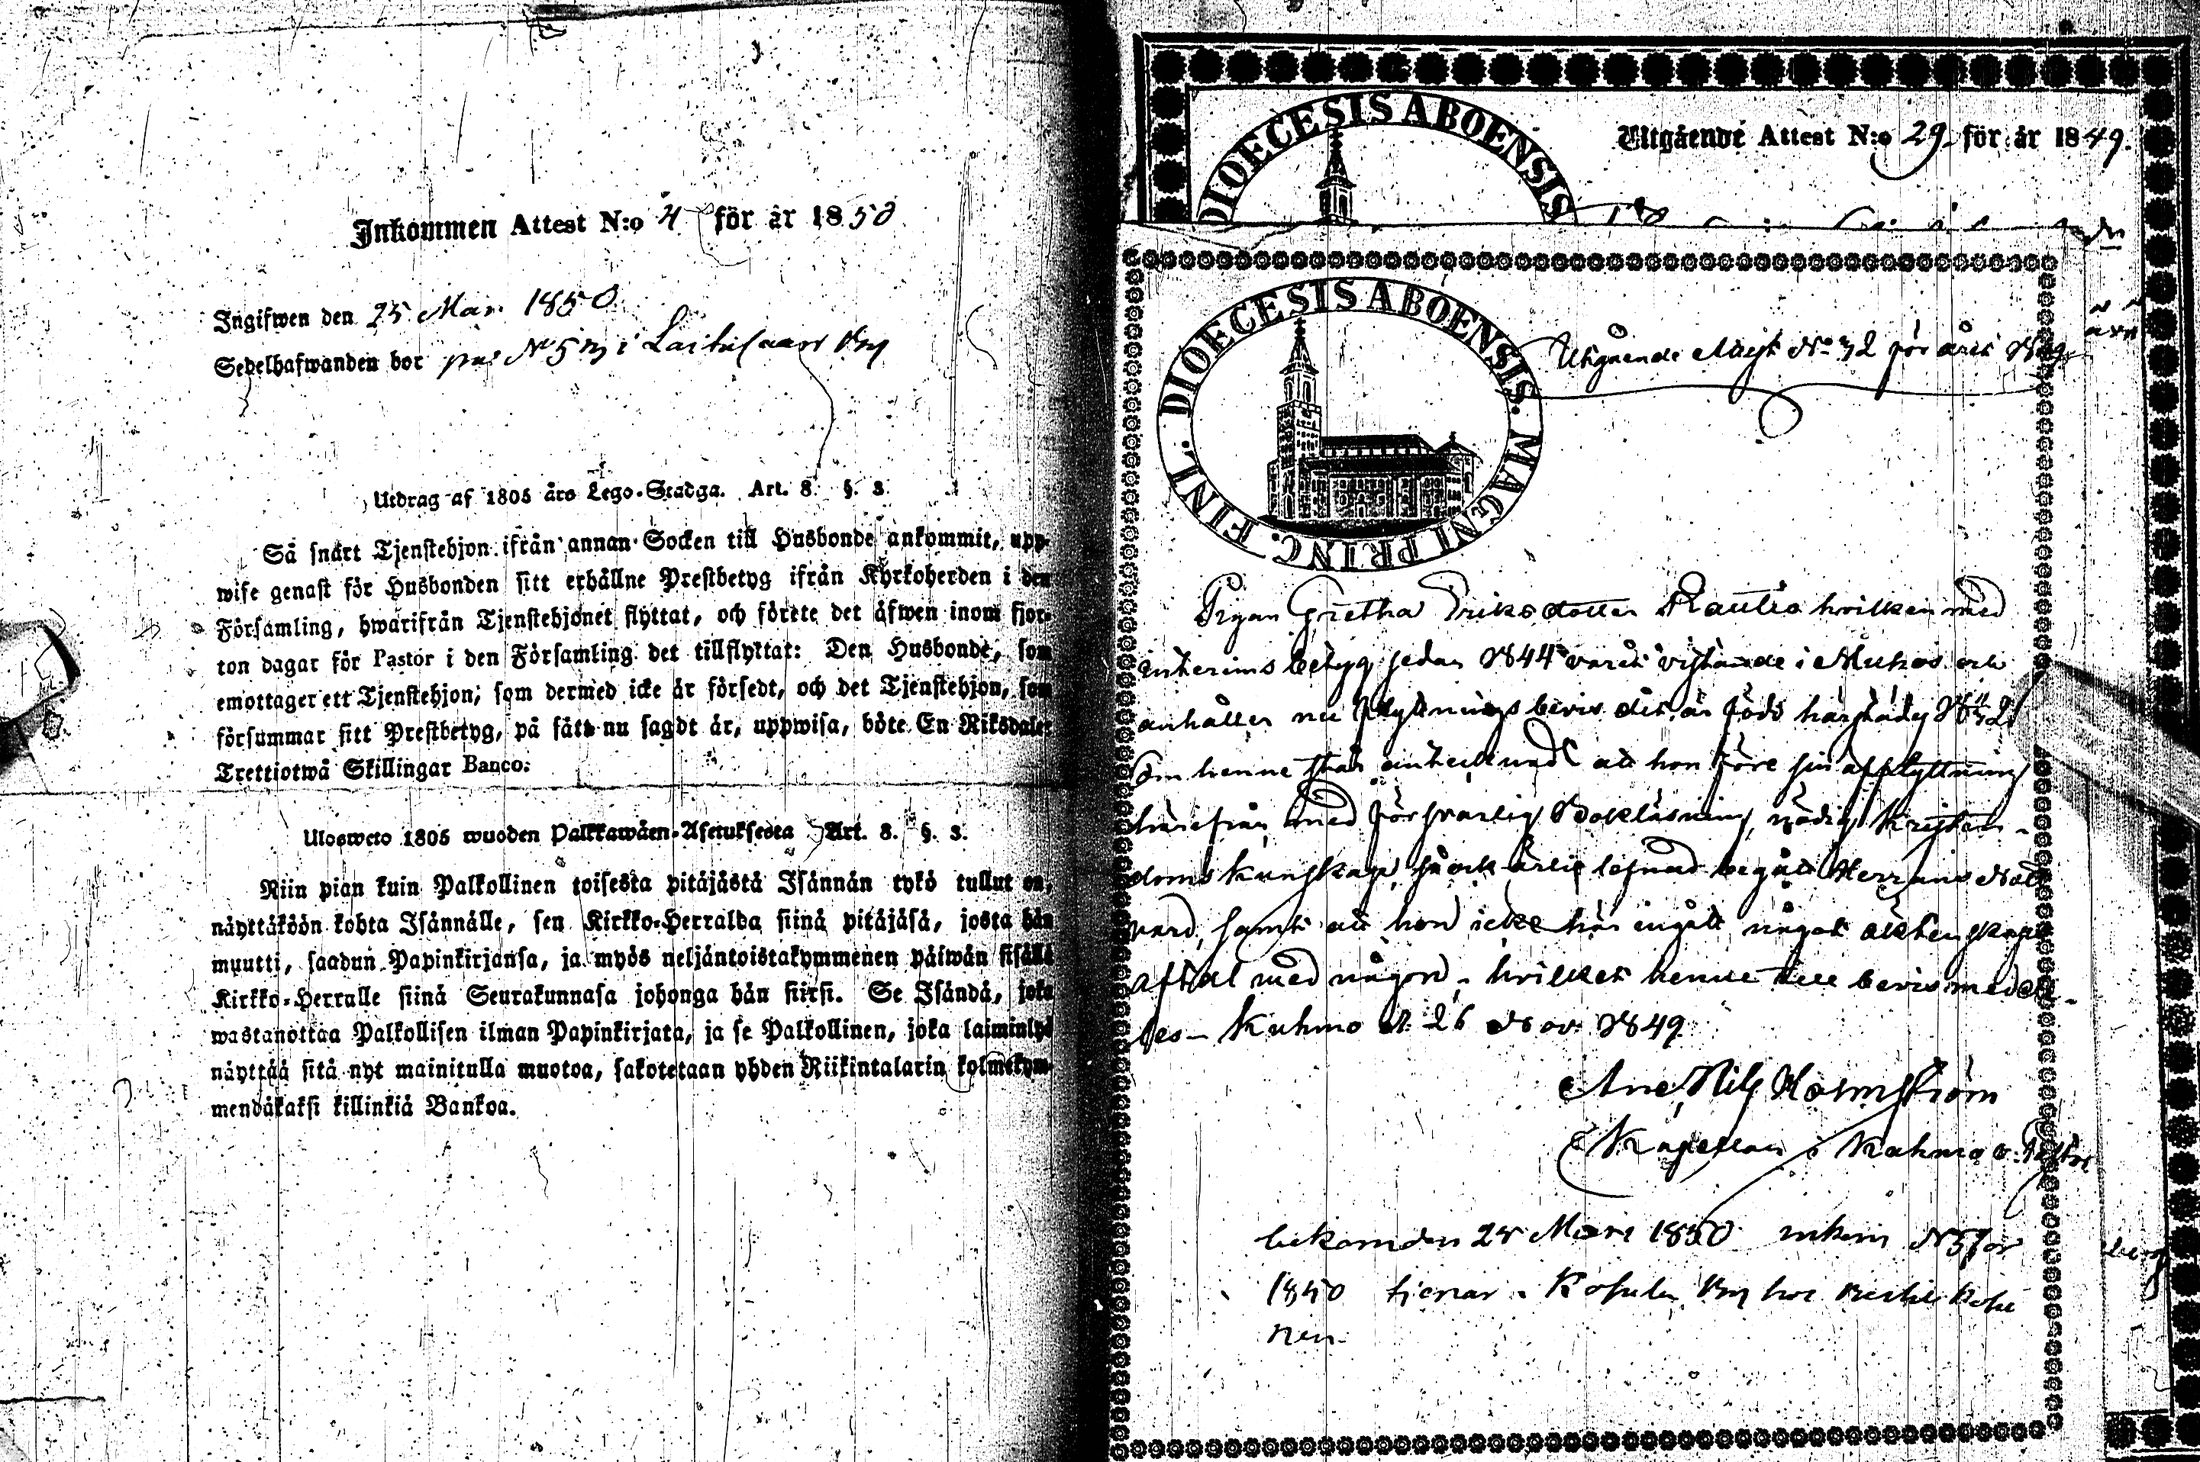 Inkommen Attest N:o 4 för år 1850
Ingifwen den 25 Mar. 1850.
Sedelhafwanden bor på N 5 i by
Utdrag af 1805 års Lego-Stadga. Art. 8. §. 3.
Så snart Tjenstehjon ifrån annan Socken till Husbonde ankommit, upp-
wise genast för Husbonden sitt erhållne Prestbetyg ifrån Kyrkoherden i den
Församling, hwarifrån Tjenstehjonet flyttat, och förete det äfwen inom fjor-
ton dagar för Pastor i den Församling det tillflyttat: Den Husbonde, som
emottager ett Tjenstehjon, som dermed icke är försedt, och det Tjenstehjon, som
försummar sitt Prestbetyg, på sätt nu sagdt är, uppwisa, böte En Riksdaler
Trettiotwå Skillingar Banco.
Ulosweto 1805 wuoden Palkkawäen-Asetuksesta Art. 8. §. 3.
Niin pian kuin Palkollinen toisesta pitäjästä Isännän tykö tullut on,
näyttäköön kohta Isännälle, sen Kirkko-Herralda siinä pitäjäsä, josta hän
muutti, saadun Papinkirjansa, ja myös neljäntoistakymmenen päiwän sisällä
Kirkko-Herralle siinä Seurakunnasa johonga hän siirsi. Se Isändä, joka
wastanottaa Palkollisen ilman Papinkirjata, ja se Palkollinen, joka laiminlyö
näyttää sitä nyt mainitulla muotoa, sakotetaan yhden Riikintalarin kolmekym-
mendäkaksi killinkiä Bankoa.
DIOECESIS ABOENSIS
Utgående Attest N:o 29 för år 1849.
DIOECESIS ABOENSIS. MAGNI PRINC. FINL.
Utgående Attest No 32 för året 1849
Pigan Gretha Eriksdotter Rautio hvilken med
interims betyg sedan 1844 varit vistande i Muhos och
anhåller nu flyttnings bevis dit, är född härstädes
Om henne står antecknadt att hon före sin afflyttning
härifrån med försvarlig Bokläsning, nödig Kristen-
doms kunskap, och ärlig lefnad begått Herrans Natt
vard, samt att hon icke här ingått något äktenskaps
aftal med någon, hvilket henne till bevis medde-
les Kuhmo d. 26 Nov. 1849
Are Nils Holmström
Kapellan i Kuhmo v. Pastor
bekom den 25 Mars 1850 inkom N 5 för
1850 tjenar i by hos
nen.